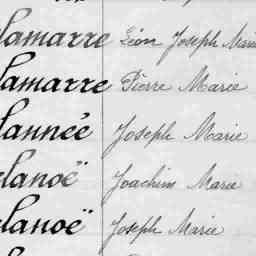 Lamarre Léon Joseph Marie
Lamarre Pierre Marie
Lannée Joseph Marie
Lanoë Joachim Marie
Lanoë Joseph Marie